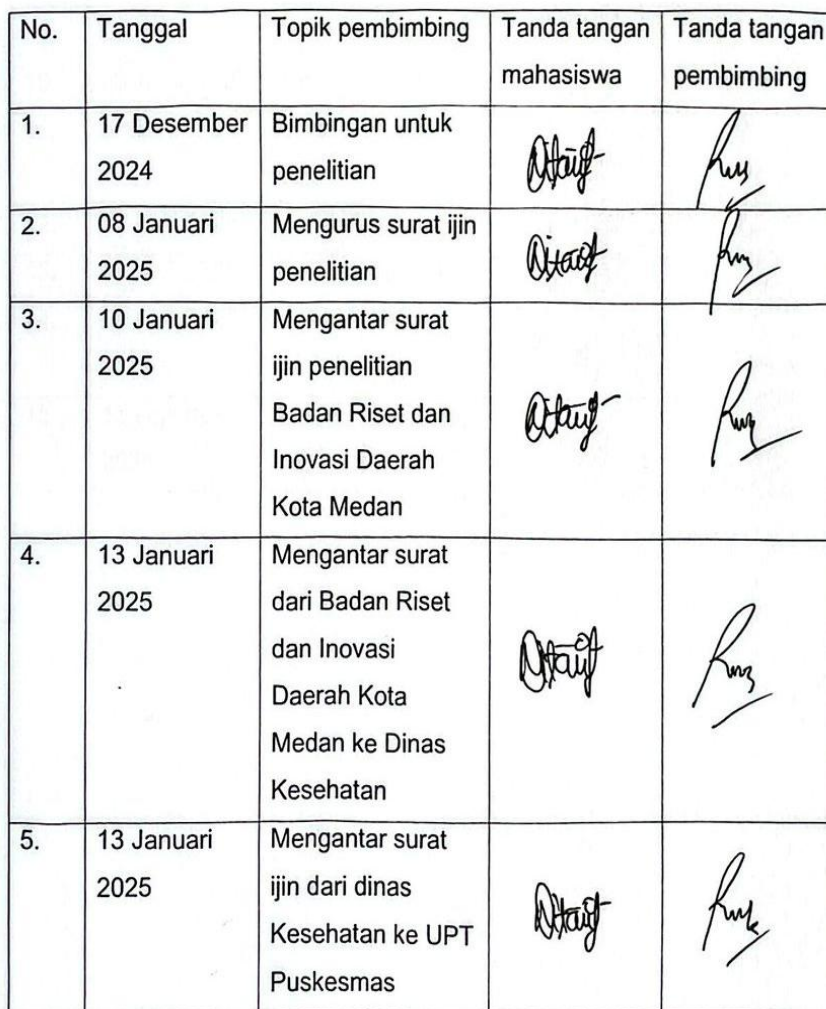 No.
Tanggal
Topik pembimbing
Tanda tangan
mahasiswa
Tanda tangan
pembimbing
1.
17 Desember
2024
Bimbingan untuk
penelitian
2.
08 Januari
2025
Mengurus surat ijin
penelitian
3.
10 Januari
2025
Mengantar surat
ijin penelitian
Badan Riset dan
Inovasi Daerah
Kota Medan
4.
13 Januari
2025
Mengantar surat
dari Badan Riset
dan Inovasi
Daerah Kota
Medan ke Dinas
Kesehatan
5.
13 Januari
2025
Mengantar surat
ijin dari dinas
Kesehatan ke UPT
Puskesmas